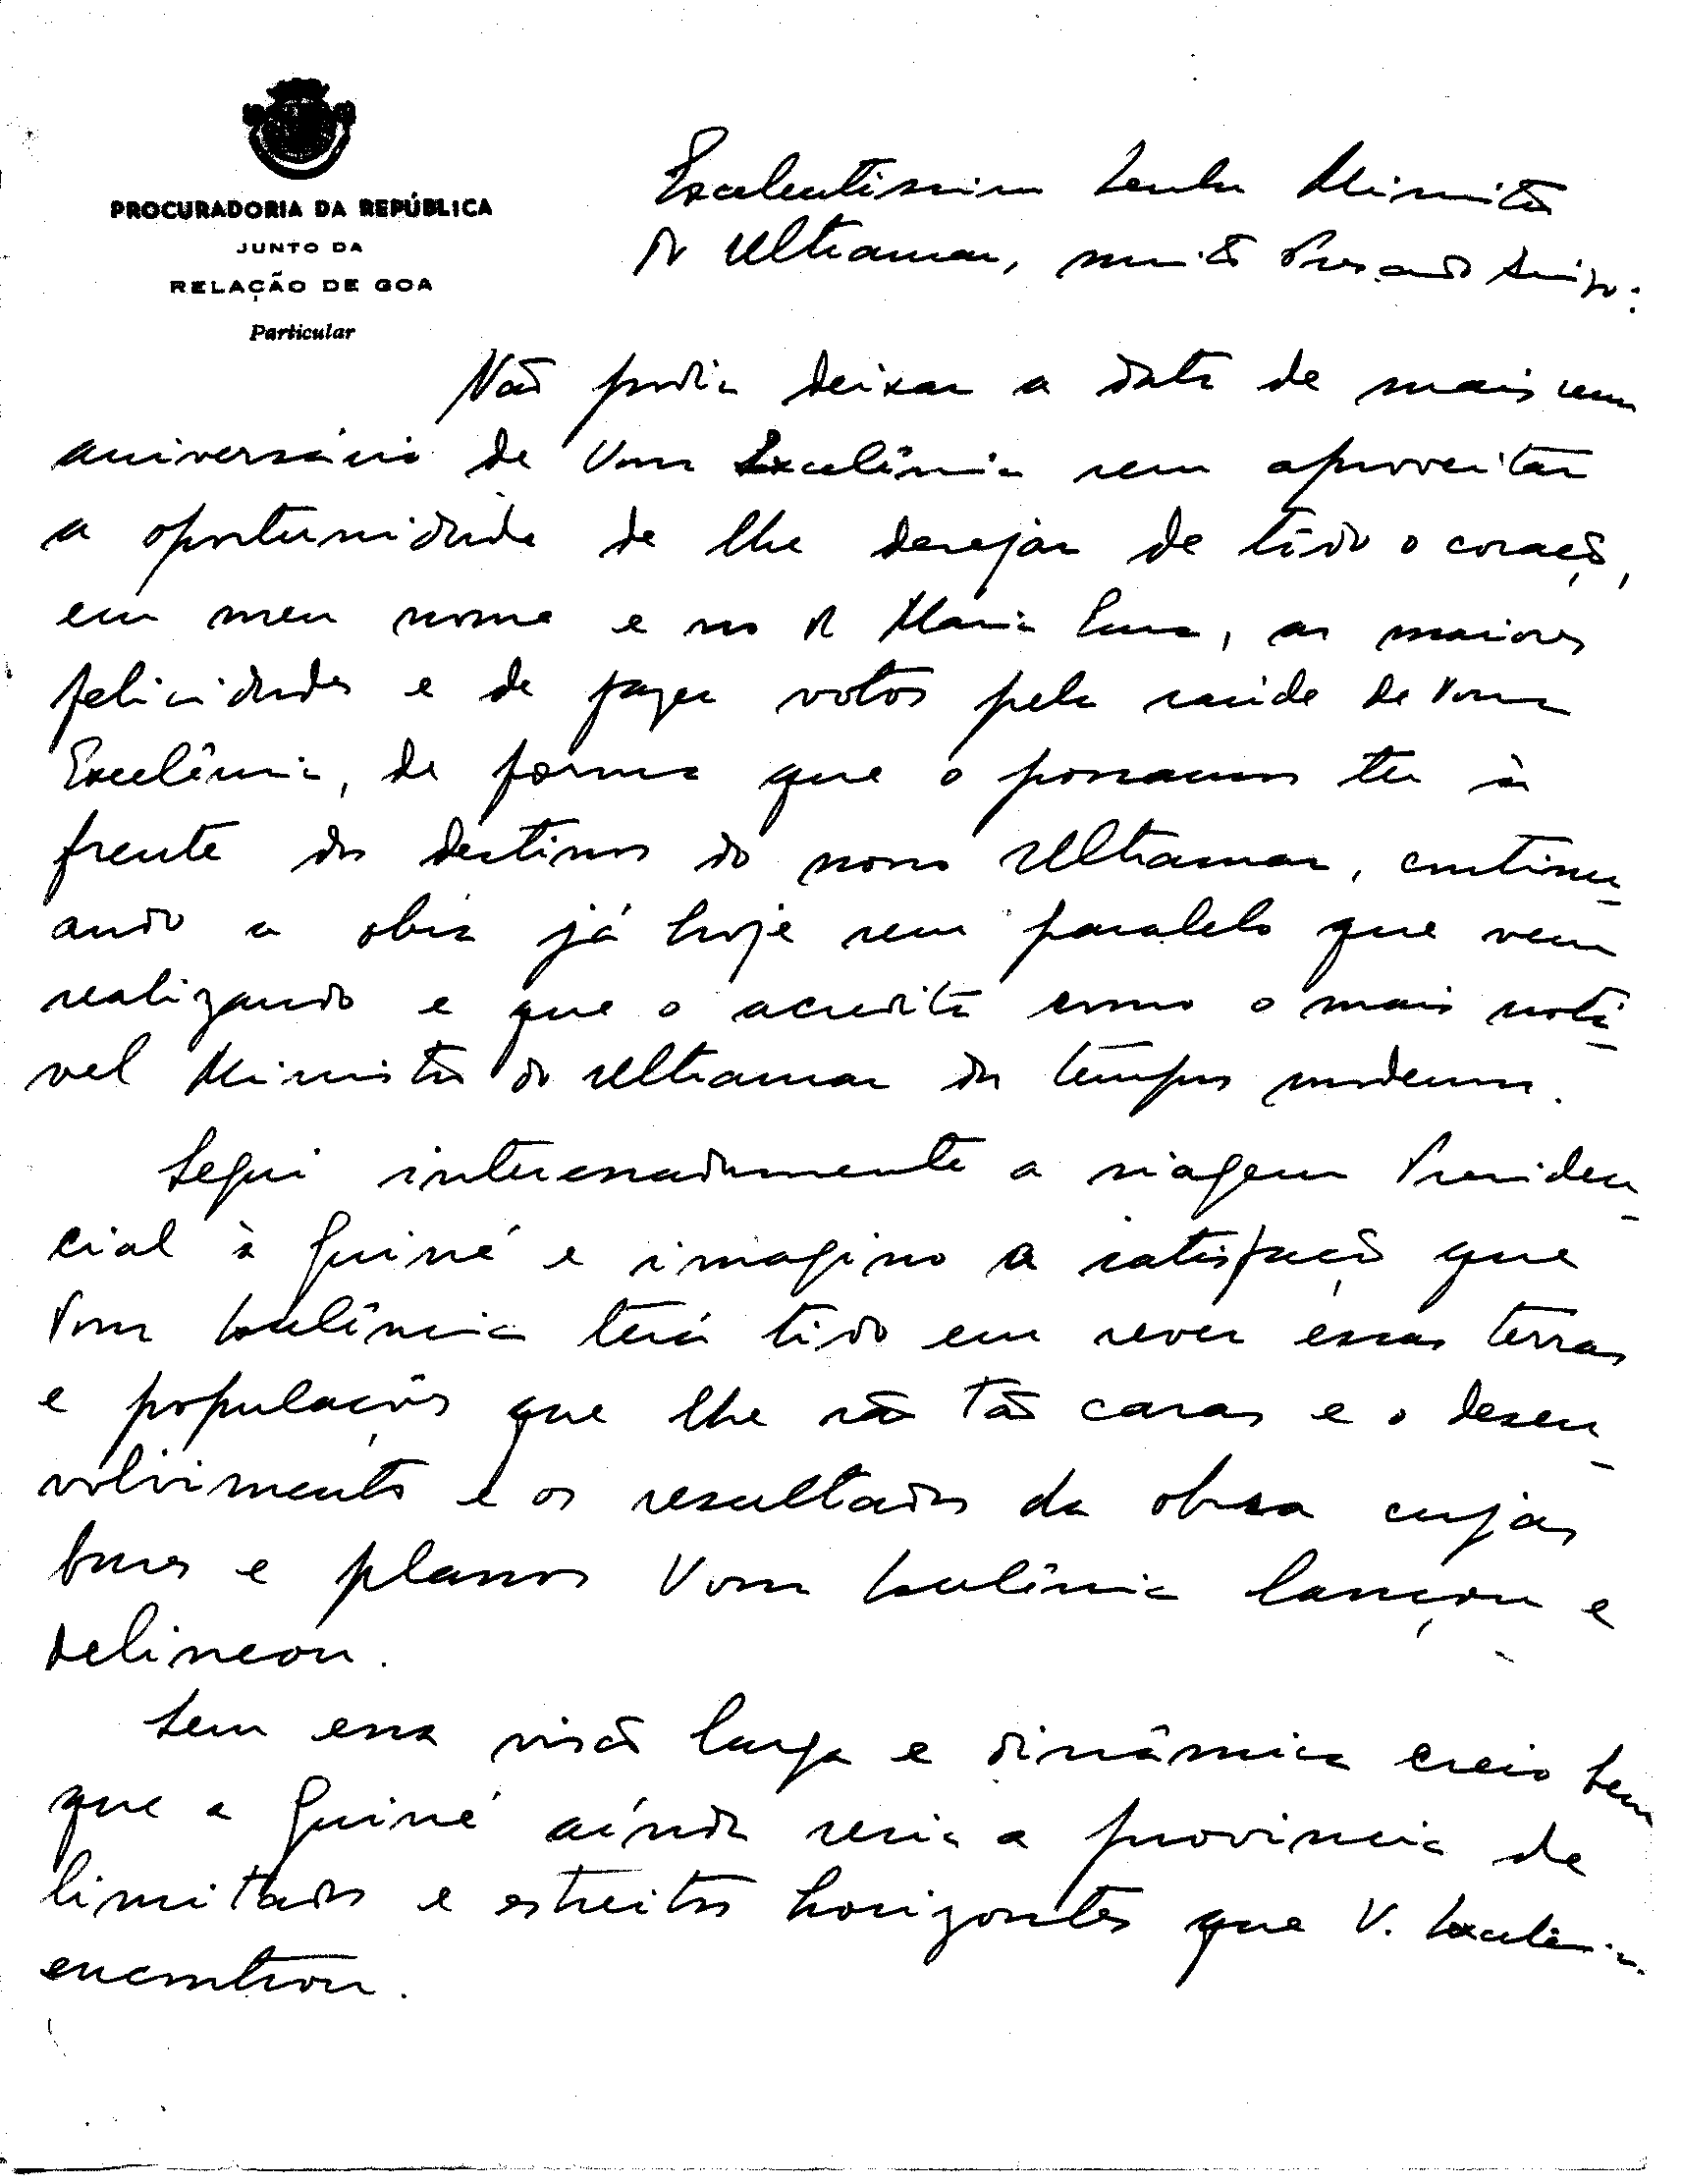 PROCURADORIA DA REPÚBLICA
JUNTO DA
RELAÇÃO DE GOA
Particular
Excelentíssimo Senhor Ministro
do Ultramar, muito Prezado Amigo:
Não podia deixar a data de mais um
aniversário de Vossa Excelência sem aproveitar
a oportunidade de lhe desejar de todo o coração,
em meu nome e no da Maria, as maiores
felicidades e de fazer votos pela saúde de Vossa
Excelência, de forma que o possamos ter à
frente dos destinos do nosso Ultramar, continu-
ando a obra já hoje sem paralelo que vem
realizando e que o acredita como o mais notá-
vel Ministro do Ultramar dos tempos modernos.
Segui interessadamente a viagem Presiden-
cial à Guiné e imagino a satisfação que
Vossa Excelência terá tido em rever essas terras
e populações que lhe são tão caras e o desen-
volvimento e os resultados da obra cujas
bases e planos Vossa Excelência lançou e
delineou.
Sem essa visão larga e dinâmica creio bem
que a Guiné ainda seria a província de
limitados e estreitos horizontes que V. Excelência
encontrou.